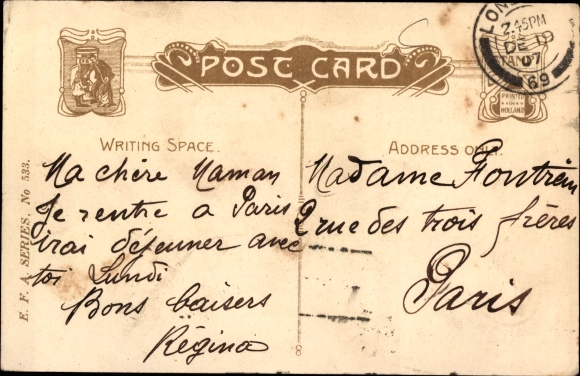 POST CARD
LON
2.45PM
DE 19
07
69
PRINTED
IN
HOLLAND
WRITING SPACE.
Ma chère Maman
Je rentre a Paris
irai déjeuner avec
toi Lundi
Bons baisers
Régina
ADDRESS ONLY.
Madame
2 rue des trois frères
Paris
E. F. A. SERIES. No 533.